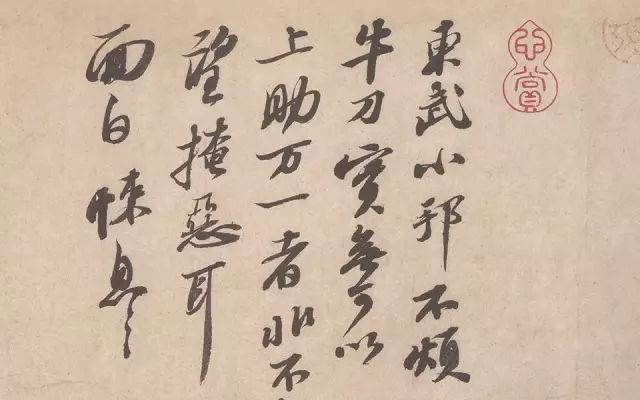 心賞
東武小邦不煩
牛刀實無可以
上助万一者非不
望掩惡耳
面白悚息〻